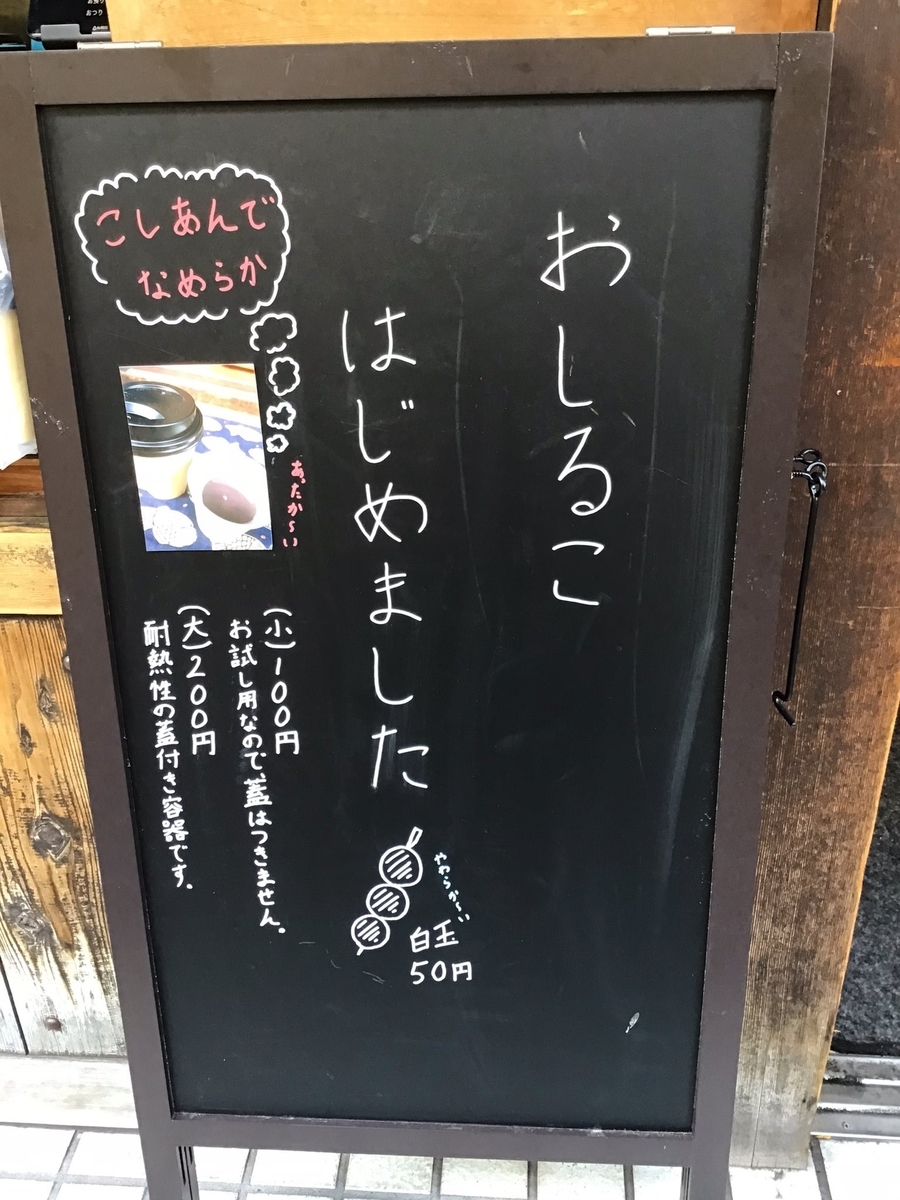 おしるこ
はじめました
こしあんで
なめらか
あったか〜い
(小)100円
お試し用なので、蓋はつきません。
(大)200円
耐熱性の蓋付き容器です。
やわらか〜い
白玉
50円